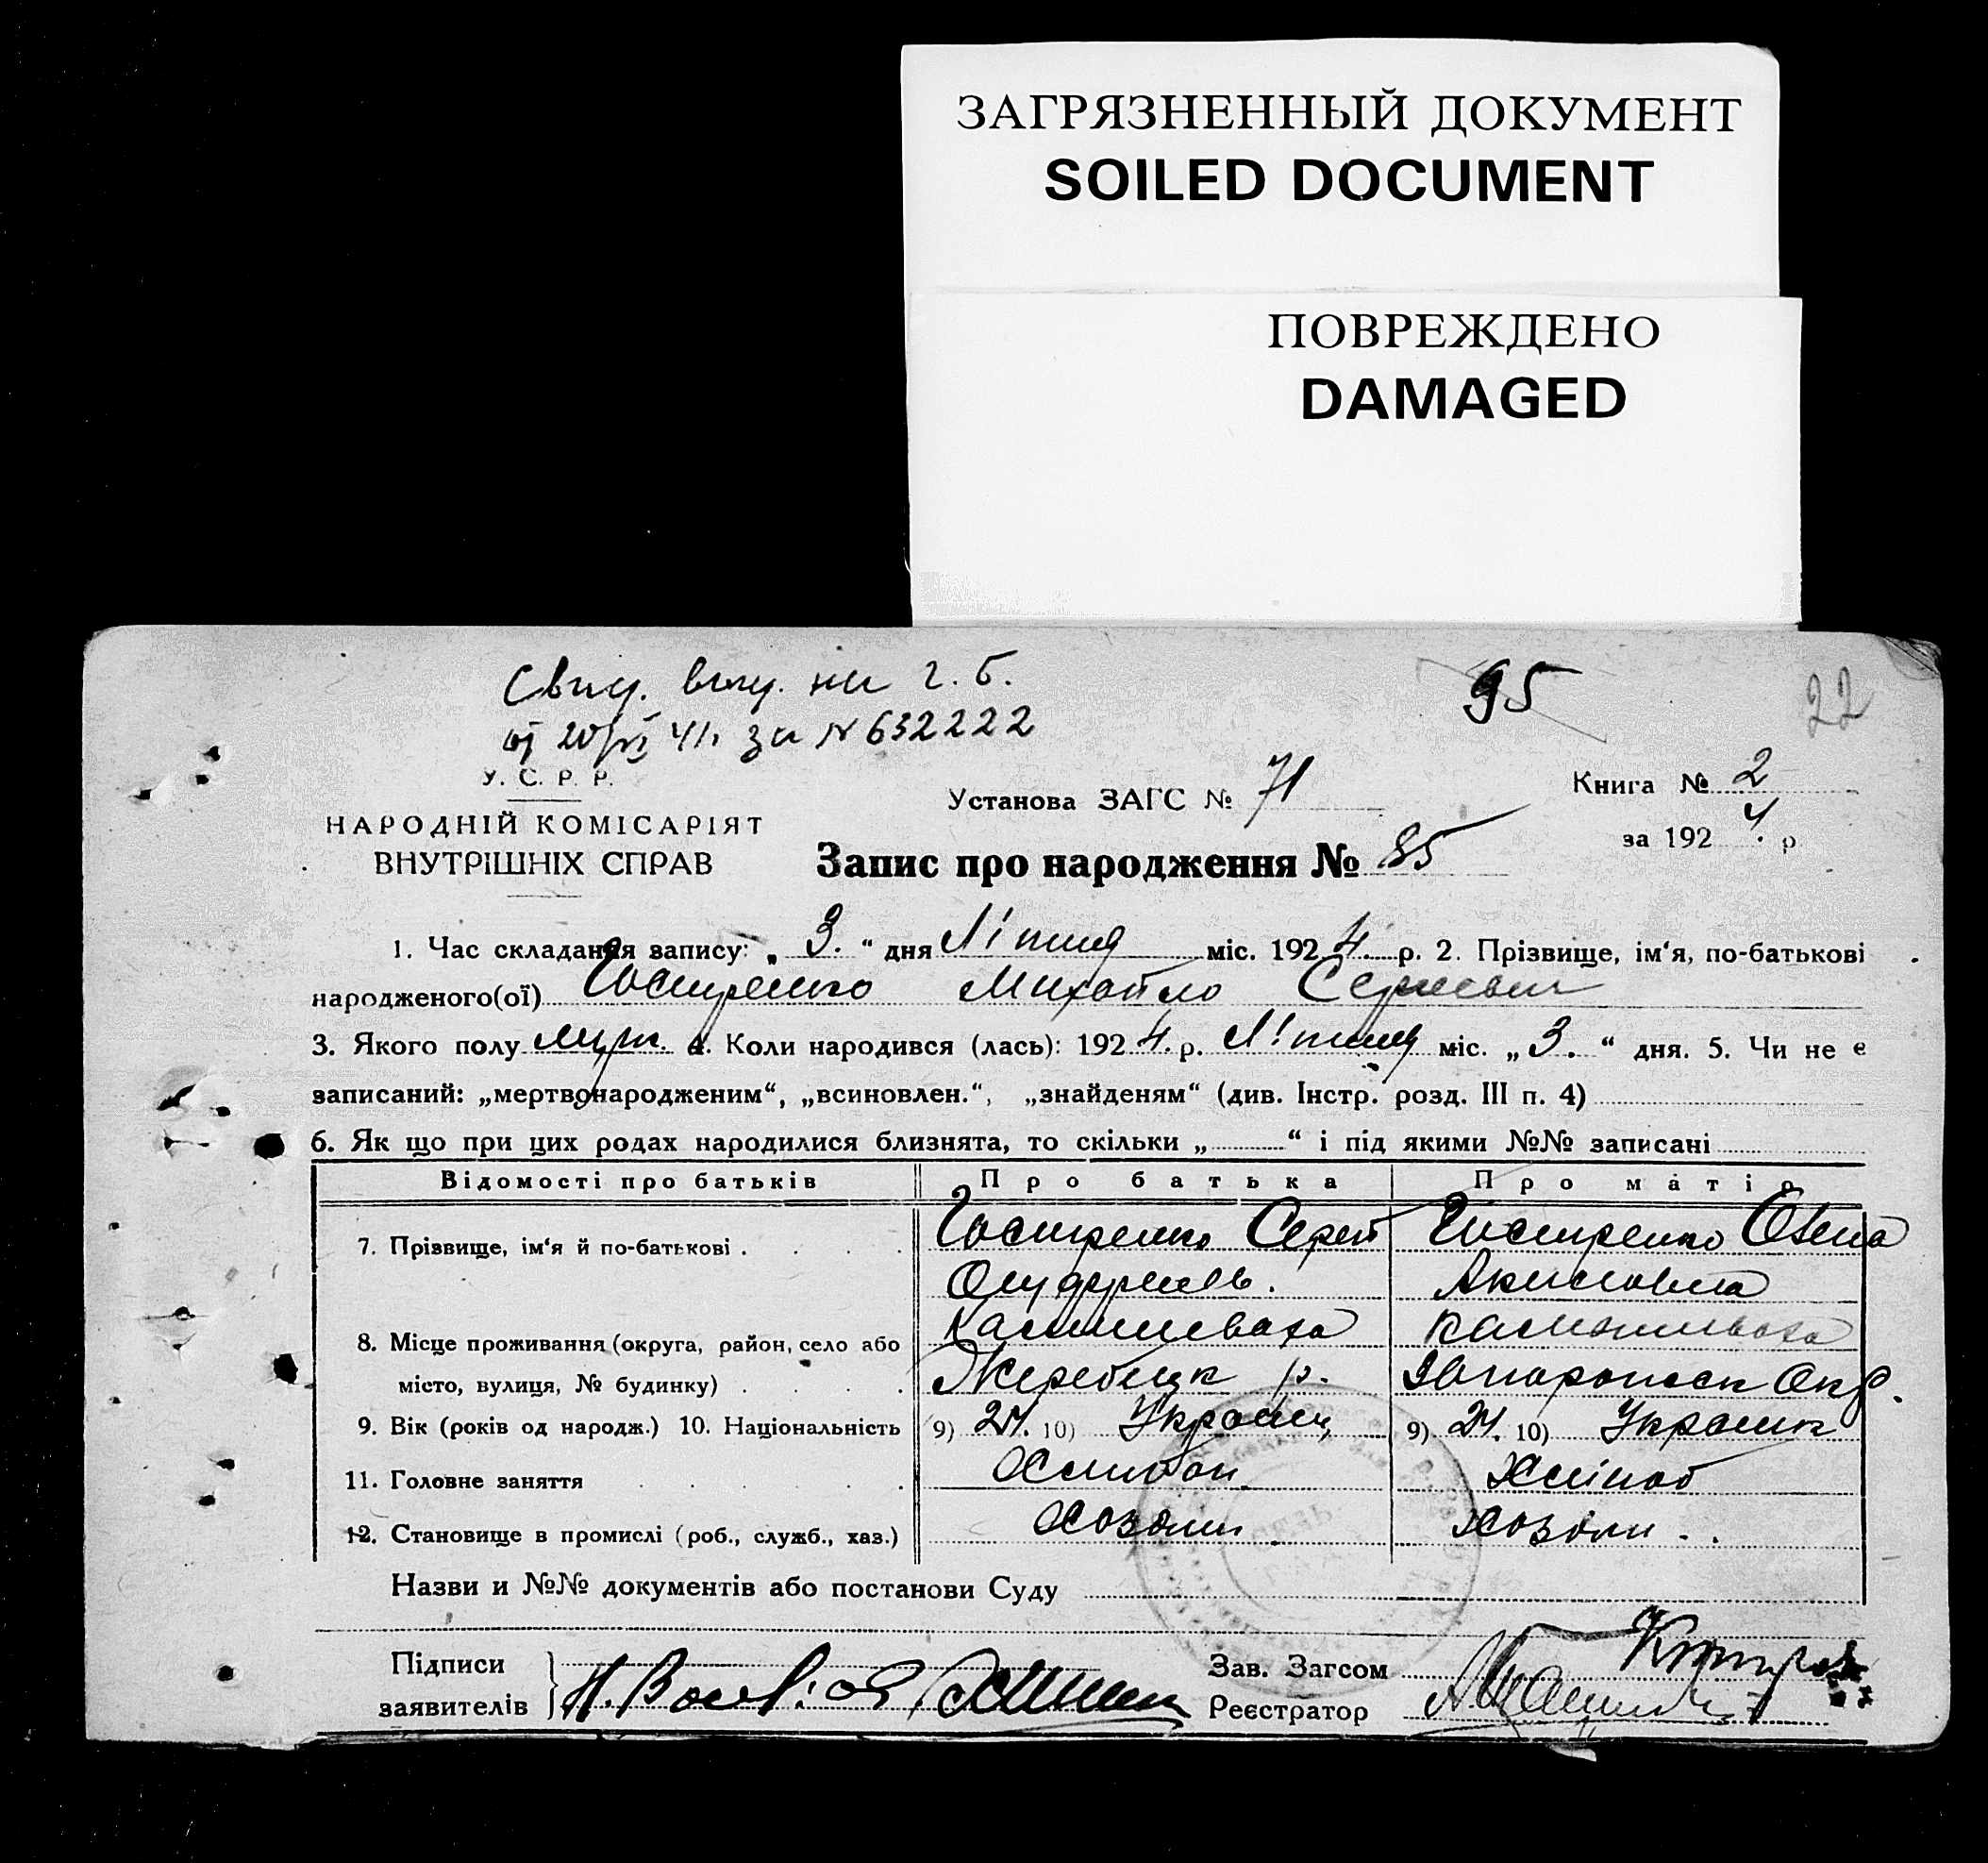 ЗАГРЯЗНЕННЫЙ ДОКУМЕНТ
SOILED DOCUMENT
ПОВРЕЖДЕНО
DAMAGED
95
22
Свид. выд. на г. б.
от 20/VI 41 г. за № 632222
У. С. Р. Р.
НАРОДНІЙ КОМІСАРІЯТ
ВНУТРІШНІХ СПРАВ
Установа ЗАГС № 71
Книга № 2
за 1924. р
Запис про народження № 85
1. Час складання запису: „ 3. “ дня Ліпня міс. 1924. р. 2. Прізвище, ім‘я, по-батькові
народженого(ої) Гостренко Михайло
3. Якого полу муж. 4. Коли народився (лась): 1924. р. Ліпня міс. „ 3. “ дня. 5. Чи не є
записаний: „мертвонародженим“, „всиновлен.“, „знайденям“ (див. Інстр. розд. III п. 4)
6. Як що при цих родах народилися близнята, то скільки „ “ і під якими №№ записані
Відомості про батьків Про батька Про матір
7. Прізвище, ім‘я й по-батькові . Гостренко Гостренко
8. Місце проживання (округа, район, село або
місто, вулиця, № будинку) . Жеребецк р. Запорожск Окр.
9. Вік (років од народж.) 10. Національність 9) 24. 10) Украинц 9) 24. 10) Украинк
11. Головне заняття
12. Становище в промислі (роб., служб., хаз.) Хозяин
Назви и №№ документів або постанови Суду
Підписи
заявителів
Зав. Загсом
Реєстратор